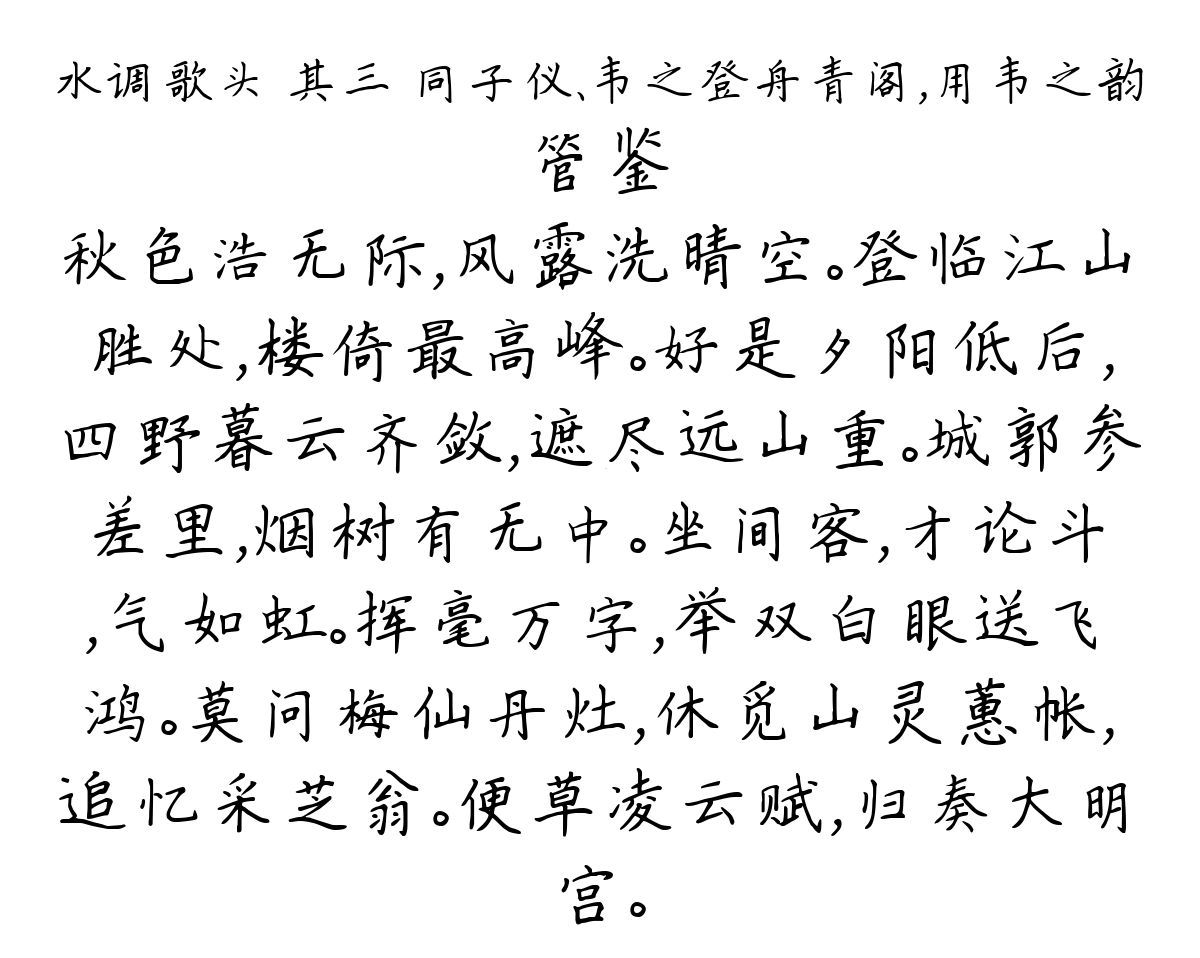 水调歌头 其三 同子仪、韦之登舟青阁,用韦之韵
管鉴
秋色浩无际,风露洗晴空。登临江山
胜处,楼倚最高峰。好是夕阳低后,
四野暮云齐敛,遮尽远山重。城郭参
差里,烟树有无中。坐间客,才论斗
,气如虹。挥毫万字,举双白眼送飞
鸿。莫问梅仙丹灶,休觅山灵蕙帐,
追忆采芝翁。便草凌云赋,归奏大明
宫。